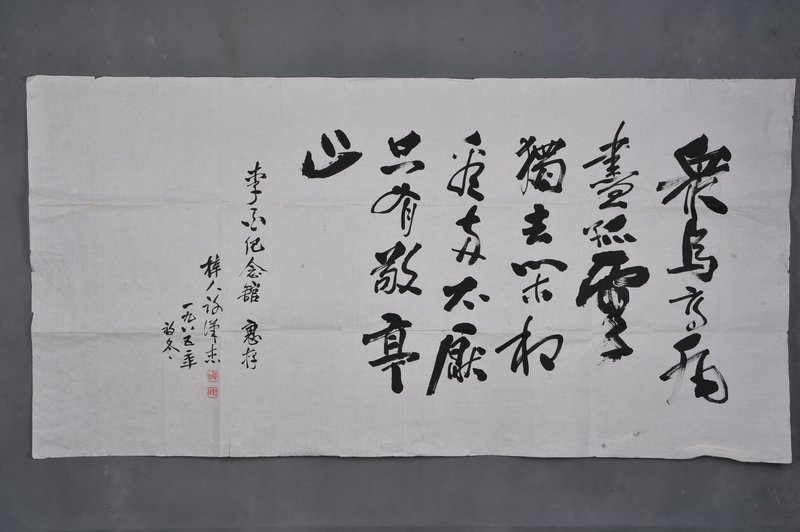 衆鳥高飛
盡孤雲
獨去閑相
看兩不厭
只有敬亭
山
李白纪念館 惠存
梓人 漢杰
一九八五年
初冬